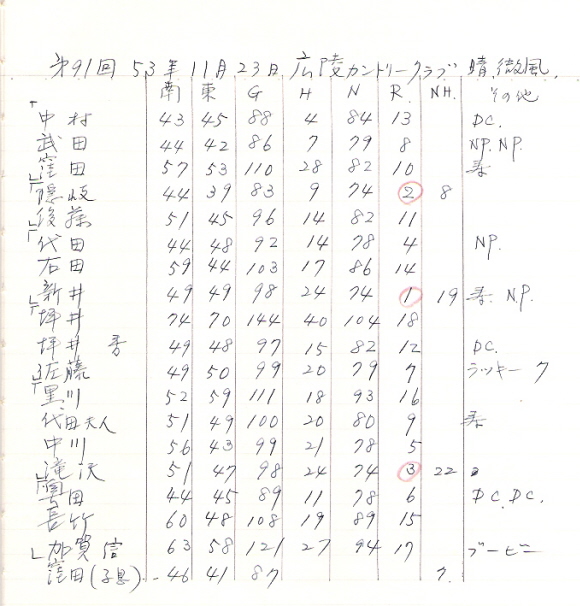 第91回 53年 11月 23日 広陵カントリークラブ 晴、微風
南 東 G H N R. NH. その他
中村 43 45 88 4 84 13 DC.
武田 44 42 86 7 79 8 NP. NP.
窪田 57 53 110 28 82 10
隠岐 44 39 83 9 74 2 8
後藤 51 45 96 14 82 11
代田 44 48 92 14 78 4 NP.
右田 59 44 103 17 86 14
新井 49 49 98 24 74 1 19 NP.
坪井 74 70 144 40 104 18
坪井 49 48 97 15 82 12 DC.
佐藤 49 50 99 20 79 7 ラッキー7
黒川 52 59 111 18 93 16
代田夫人 51 49 100 20 80 9
中川 56 43 99 21 78 5
滝沢 51 47 98 24 74 3 22
田 44 45 89 11 78 6 DC. DC.
長竹 60 48 108 19 89 15
加賀 信 63 58 121 27 94 17 ブービー
窪田(子息)‥ 46 41 87 7.